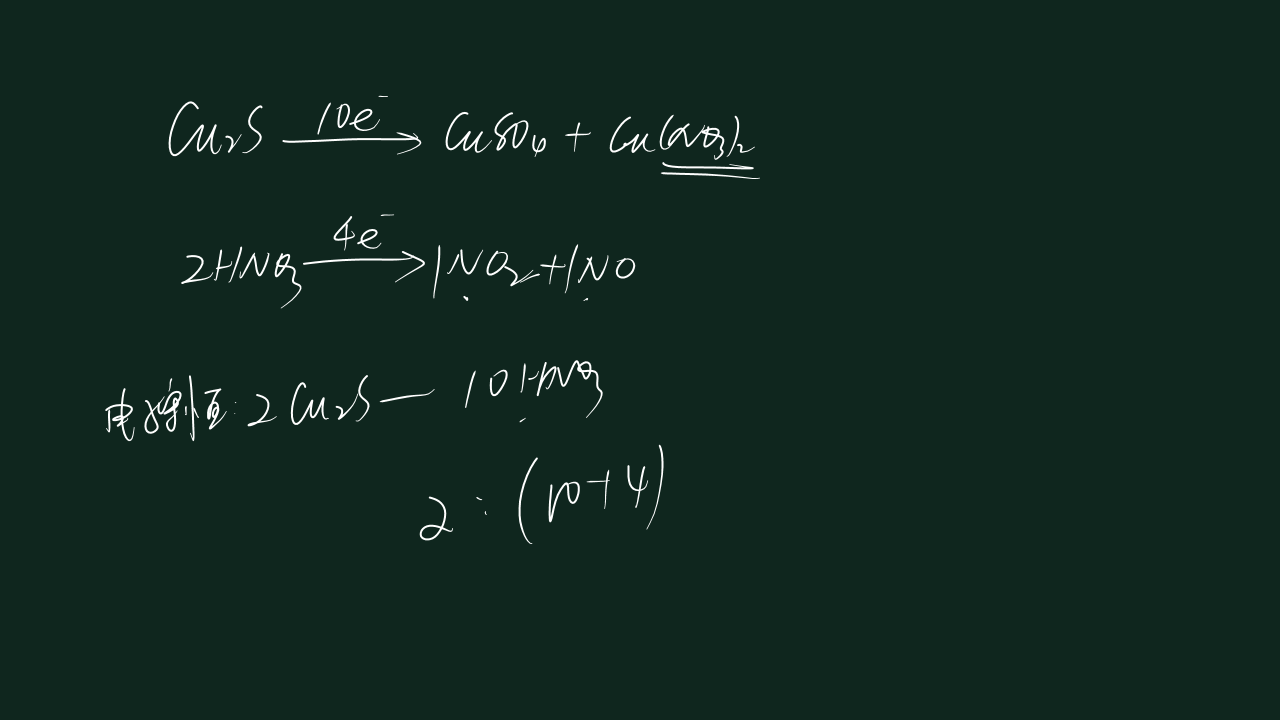 Cu₂S —10e⁻→ CuSO₄ + Cu(NO₃)₂
2HNO₃ —4e⁻→ 1NO₂ + 1NO
电子守恒: 2Cu₂S — 10HNO₃
2 : (10+4)